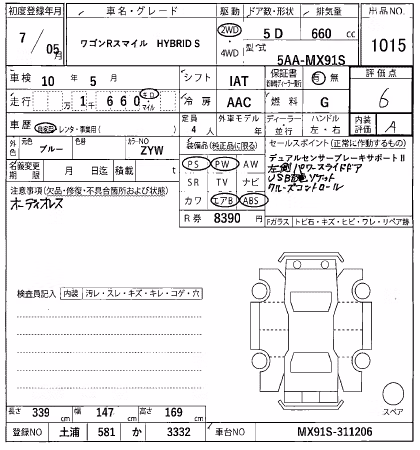 初度登録年月 車名・グレード 駆動 ドア数・形状 排気量 出品NO.
7/05月 ワゴンRスマイル HYBRID S 2WD 4WD 5D 660 cc 1015
型式 5AA-MX91S
車検 10年 5月 シフト IAT 保証書 有 無 評価点
走行 万 1千 660 キロ マイル 冷房 AAC 燃料 G 6
車歴 自家用 レンタ・事業用( ) 定員 4人 外車モデル 年 ディーラー 並行 ハンドル 左・右 内装評価 A
外色 元色 ブルー 色 カラーNO ZYW 装備品(純正品に限る) セールスポイント(正常に作動するもの)
名義変更期限 月 日迄 積載 t PS PW AW デュアルセンサーブレーキサポートⅡ
左側パワースライドドア
注意事項(欠品・修復・不具合箇所および状態) SR TV ナビ USB電源ソケット
オーディオレス カワ エアB ABS クルーズコントロール
R券 8390円 Fガラス トビ石・キズ・ヒビ・ワレ・リペア跡
検査員記入 内装 汚レ・スレ・キズ・キレ・コゲ・穴
スペア
長さ 339 cm 幅 147 cm 高さ 169 cm
登録NO 土浦 581 か 3332 車台NO MX91S-311206